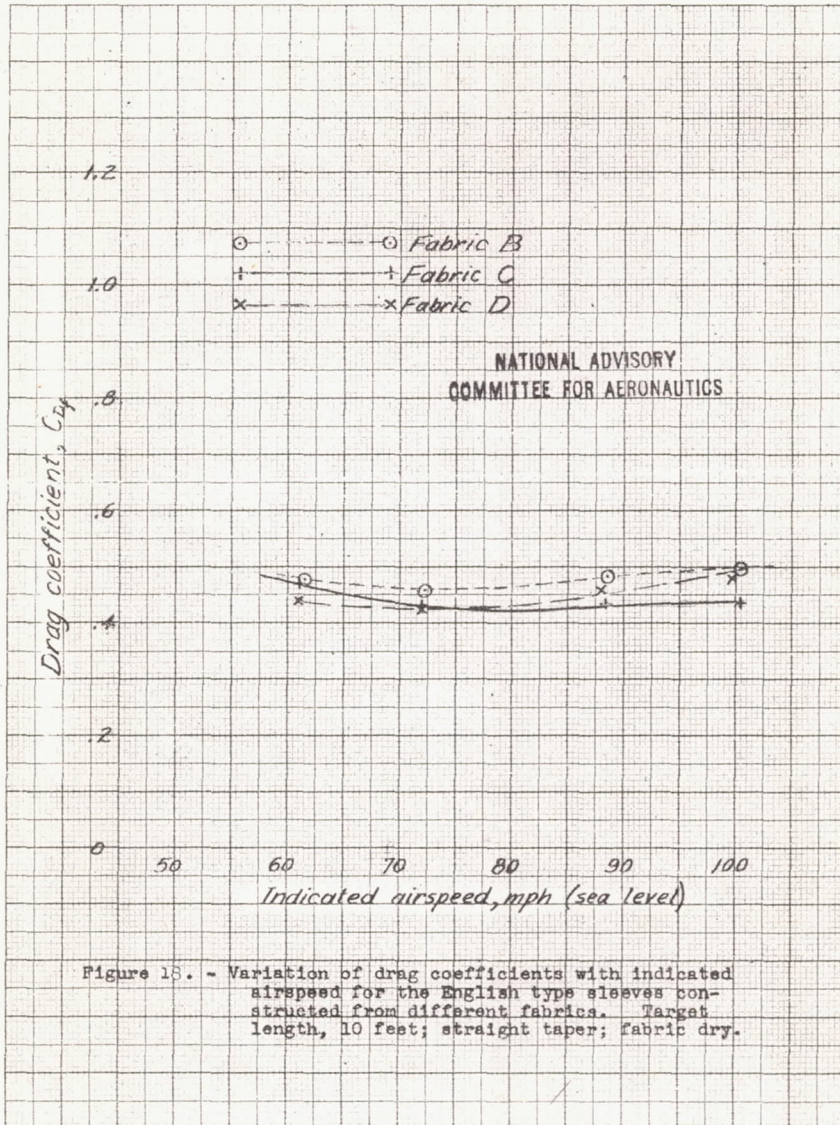 1.2
Fabric B
Fabric C
1.0
Fabric D
NATIONAL ADVISORY
COMMITTEE FOR AERONAUTICS
.8
Drag coefficient, C_Df
.6
.4
.2
0
50 60 70 80 90 100
Indicated airspeed, mph (sea level)
Figure 18. - Variation of drag coefficients with indicated
airspeed for the English type sleeves con-
structed from different fabrics. Target
length, 10 feet; straight taper; fabric dry.